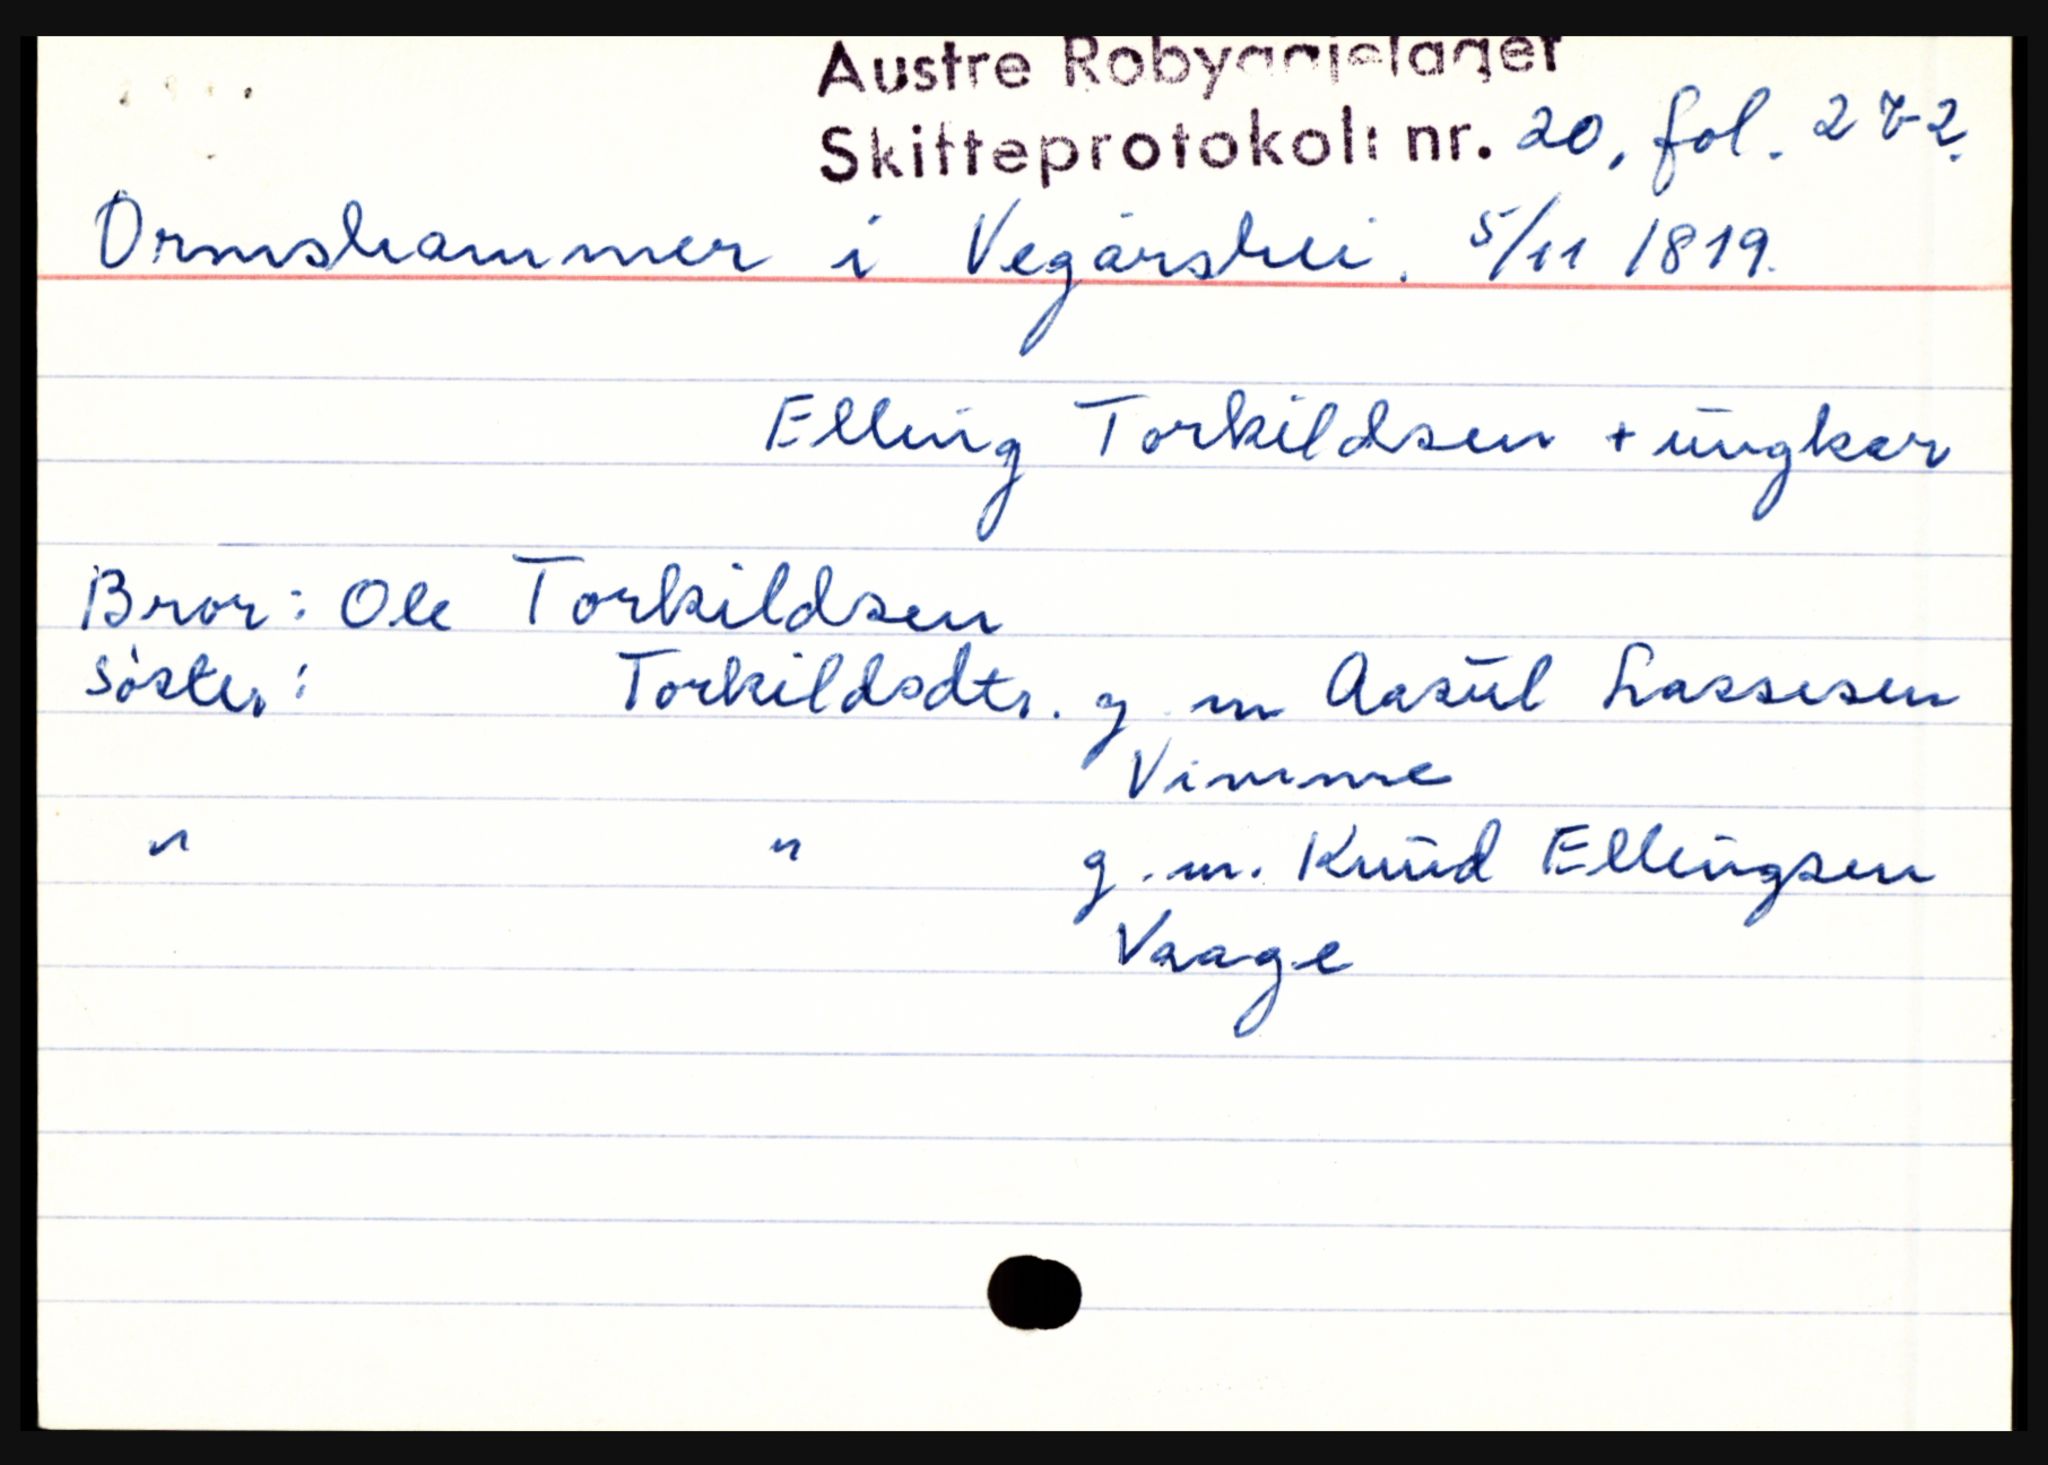 Austre Robyggjelaget
Skifteprotokoll nr. 20, fol. 272.
Ormshammer i Vegårshei. 5/11 1819.
Elling Torkildsen + ungkar
Bror: Ole Torkildsen
Söster: Torkildsdtr. g m Aasul Lassesen
Vimme
" " g.m. Knud Ellingsen
Vaage